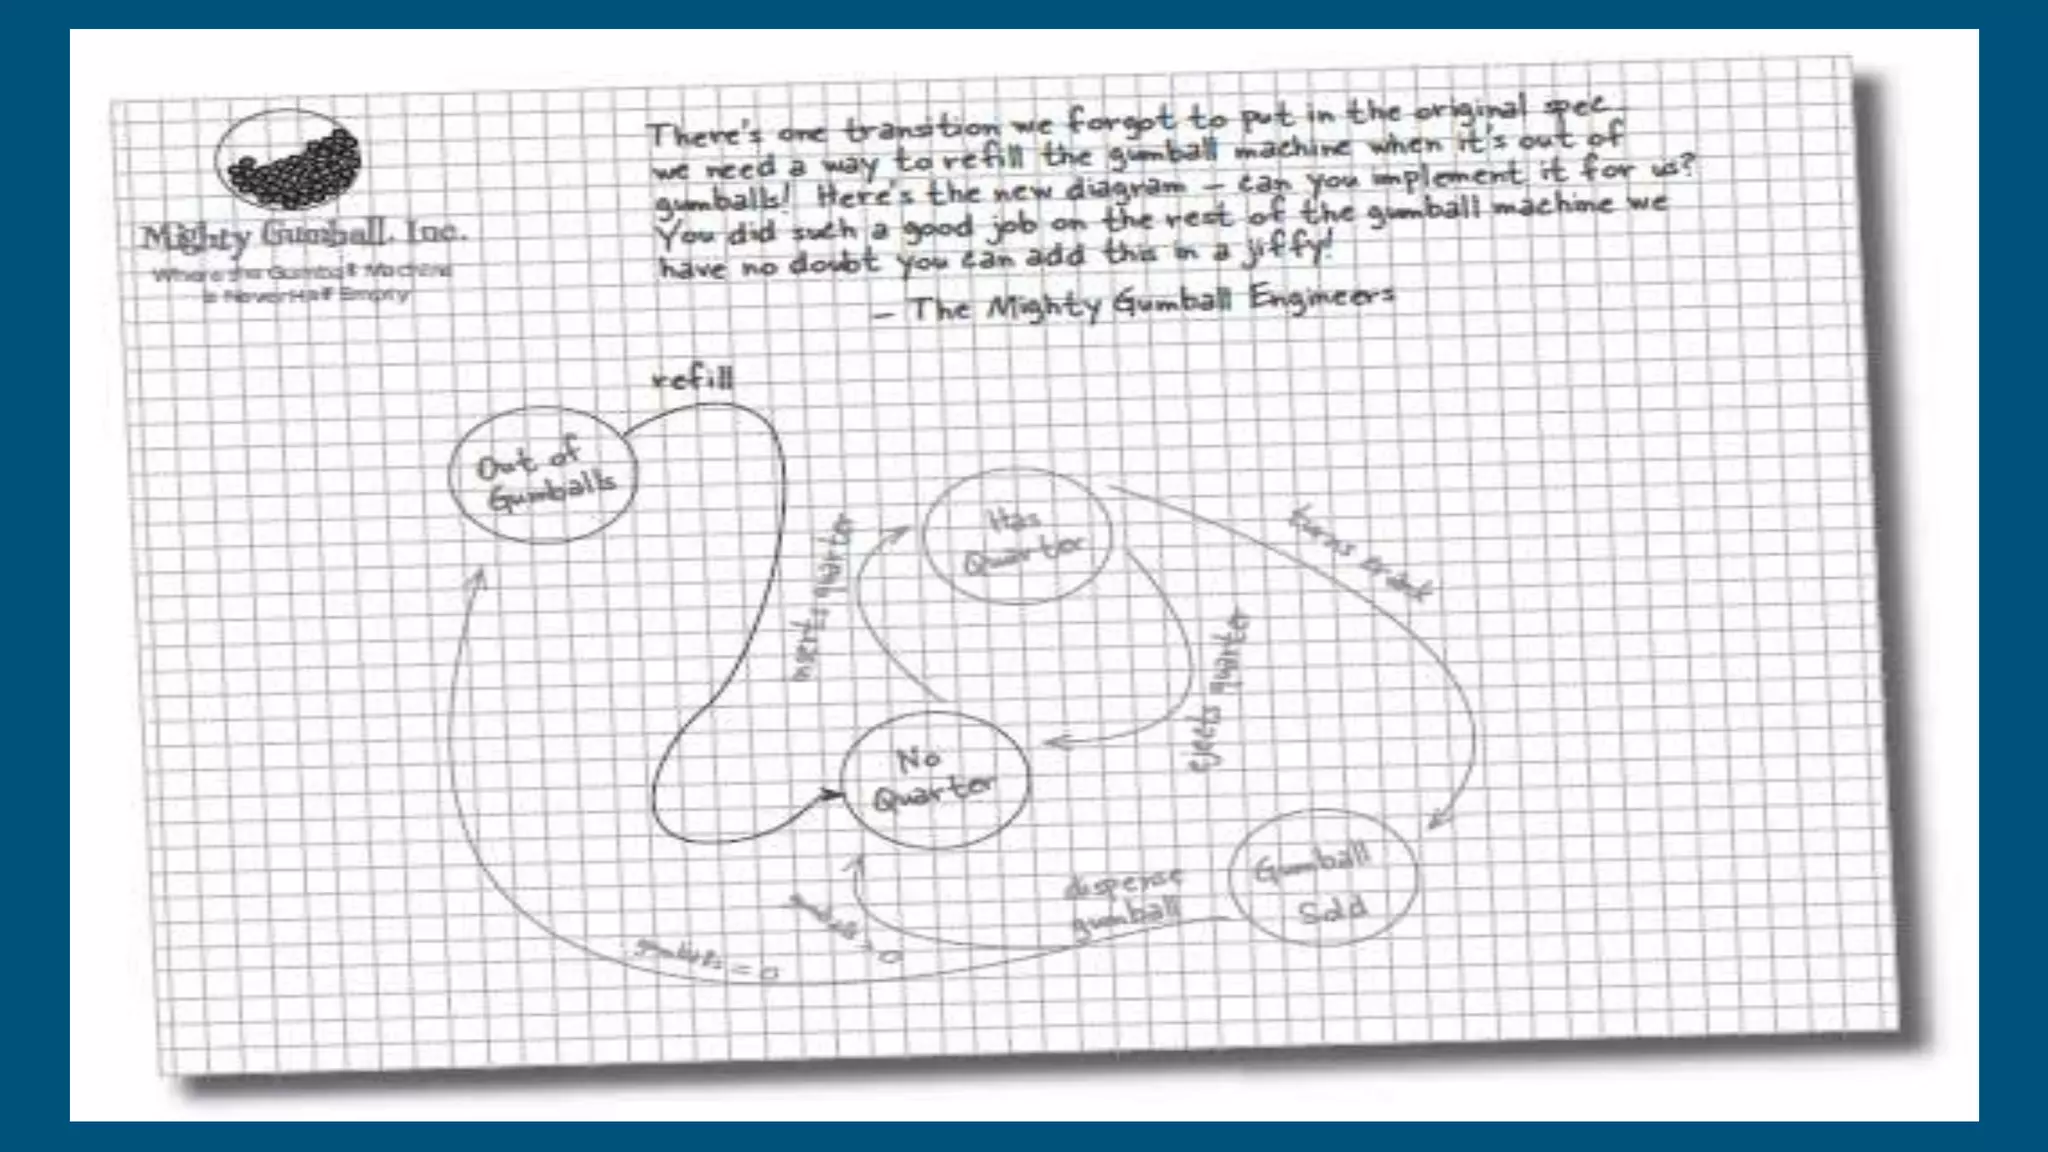 There's one transition we forgot to put in the original spec
we need a way to refill the gumball machine when it's out of
gumballs! Here's the new diagram – can you implement it for us?
You did such a good job on the rest of the gumball machine we
have no doubt you can add this in a jiffy!
– The Mighty Gumball Engineers
Mighty Gumball, Inc.
Where the Gumball Machine
is Never Half Empty
refill
Out of
Gumballs
inserts quarter
Has
Quarter
turns crank
ejects quarter
No
Quarter
Gumball
Sold
dispense
gumball
gumballs > 0
gumballs = 0